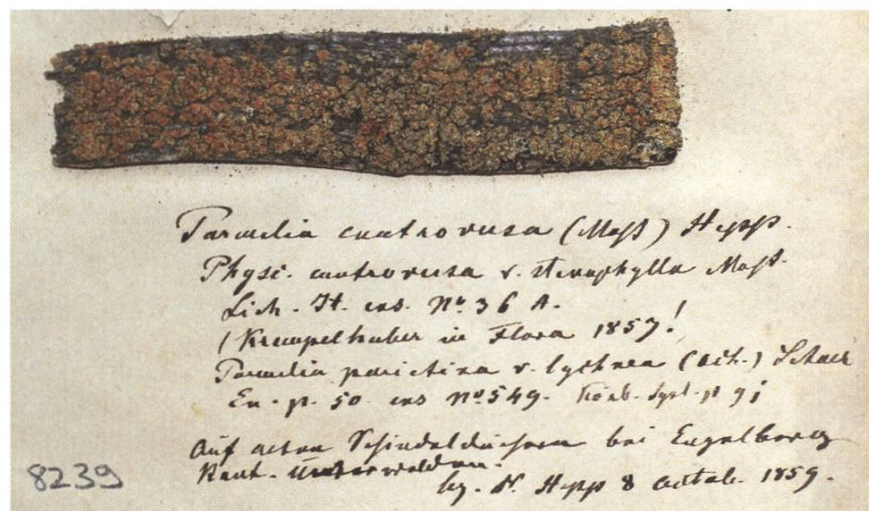 Parmelia controversa (Mass) Hepp.
Physc. controversa v. stenophylla Mass.
Lich. It. exs. No. 36 A.
(Krempelhuber in Flora 1857!
Parmelia parietina v. lychnea (Ach.) Schaer
En. p. 50. exs No. 549. Körb. Syst. p 91
Auf alten Schindeldächern bei Engelberg
Kant. Unterwalden.
lg. Hepp 8 Octob. 1859.
8239